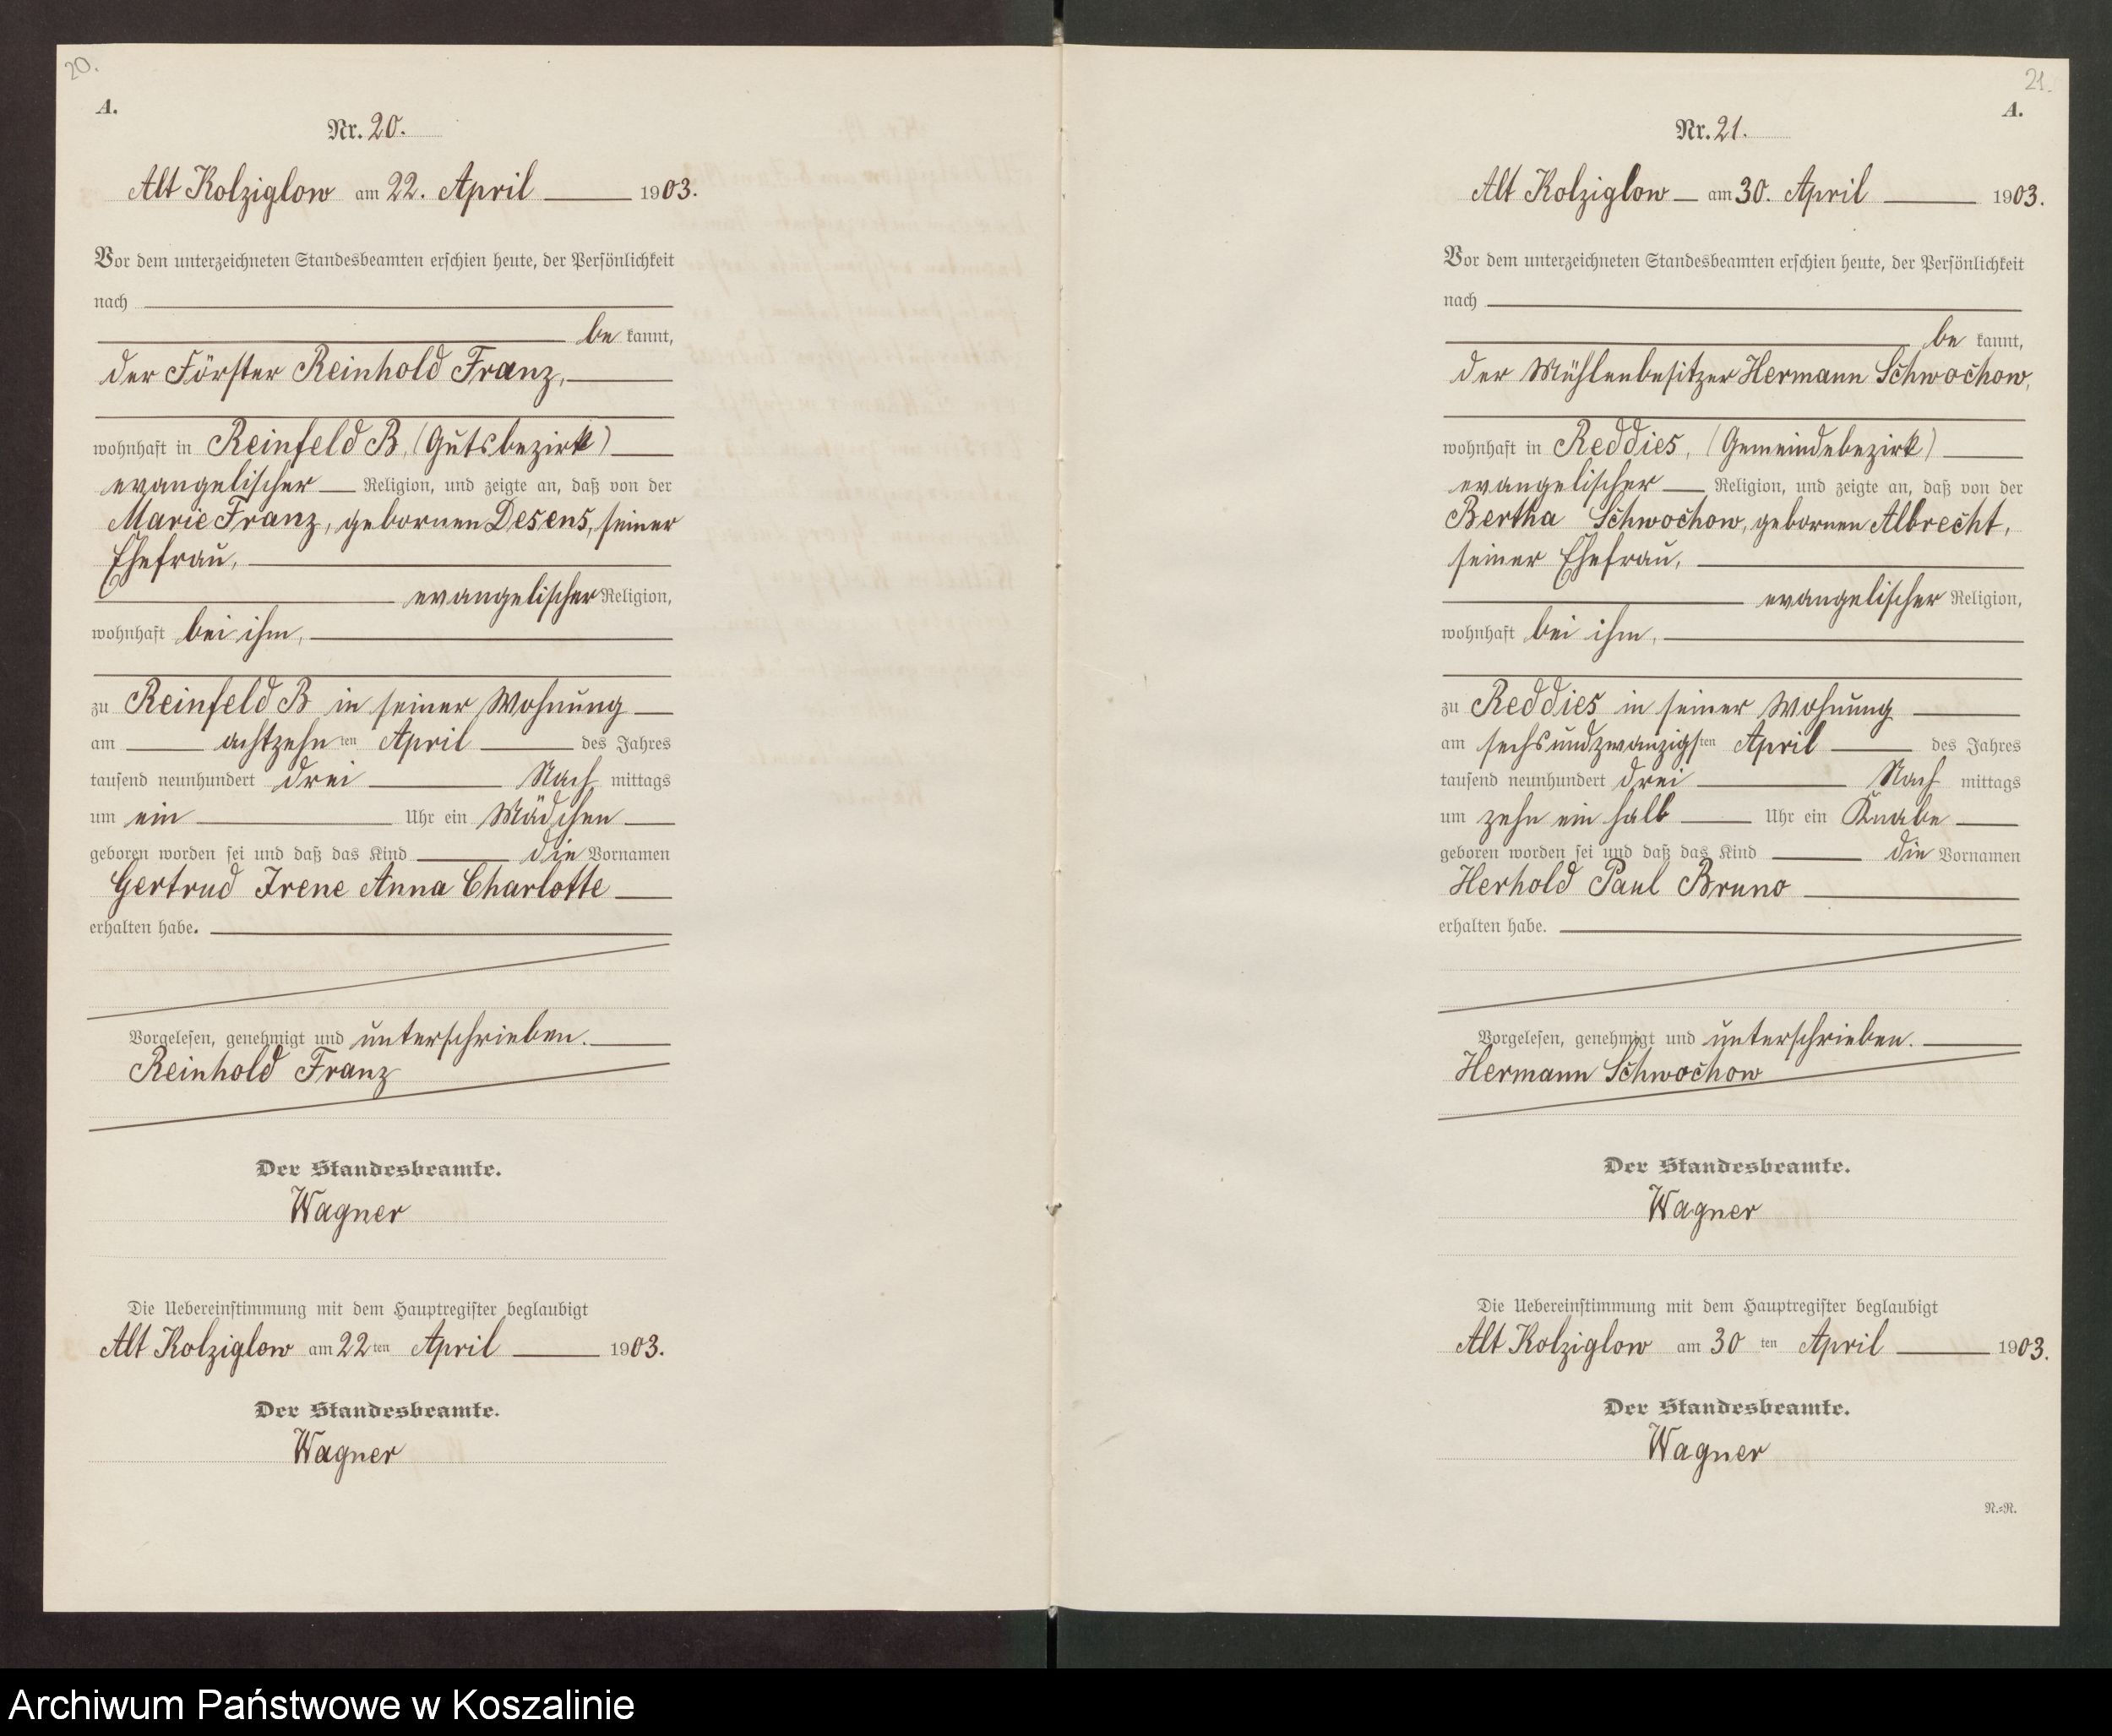 20.
A.
Nr. 20.
Alt Kolziglow am 22. April 1903.
Vor dem unterzeichneten Standesbeamten erschien heute, der Persönlichkeit
nach
be kannt,
der Förster Reinhold Franz,
wohnhaft in Reinfeld B, (Gutsbezirk)
evangelischer Religion, und zeigte an, daß von der
Marie Franz, gebornen Desens, seiner
Ehefrau,
evangelischer Religion,
wohnhaft bei ihm,
zu Reinfeld B in seiner Wohnung
am achtzehn ten April des Jahres
tausend neunhundert drei Nach mittags
um ein Uhr ein Mädchen
geboren worden sei und daß das Kind die Vornamen
Gertrud Irene Anna Charlotte
erhalten habe.
Vorgelesen, genehmigt und unterschrieben.
Reinhold Franz
Der Standesbeamte.
Wagner
Die Uebereinstimmung mit dem Hauptregister beglaubigt
Alt Kolziglow am 22 ten April 1903.
Der Standesbeamte.
Wagner
21.
A.
Nr. 21.
Alt Kolziglow am 30. April 1903.
Vor dem unterzeichneten Standesbeamten erschien heute, der Persönlichkeit
nach
be kannt,
der Mühlenbesitzer Hermann Schwochow,
wohnhaft in Reddies, (Gemeindebezirk)
evangelischer Religion, und zeigte an, daß von der
Bertha Schwochow, gebornen Albrecht,
seiner Ehefrau,
evangelischer Religion,
wohnhaft bei ihm,
zu Reddies in seiner Wohnung
am sechsundzwanzigs ten April des Jahres
tausend neunhundert drei Nach mittags
um zehn ein halb Uhr ein Knabe
geboren worden sei und daß das Kind die Vornamen
Herhold Paul Bruno
erhalten habe.
Vorgelesen, genehmigt und unterschrieben.
Hermann Schwochow
Der Standesbeamte.
Wagner
Die Uebereinstimmung mit dem Hauptregister beglaubigt
Alt Kolziglow am 30 ten April 1903.
Der Standesbeamte.
Wagner
N.=N.
Archiwum Państwowe w Koszalinie